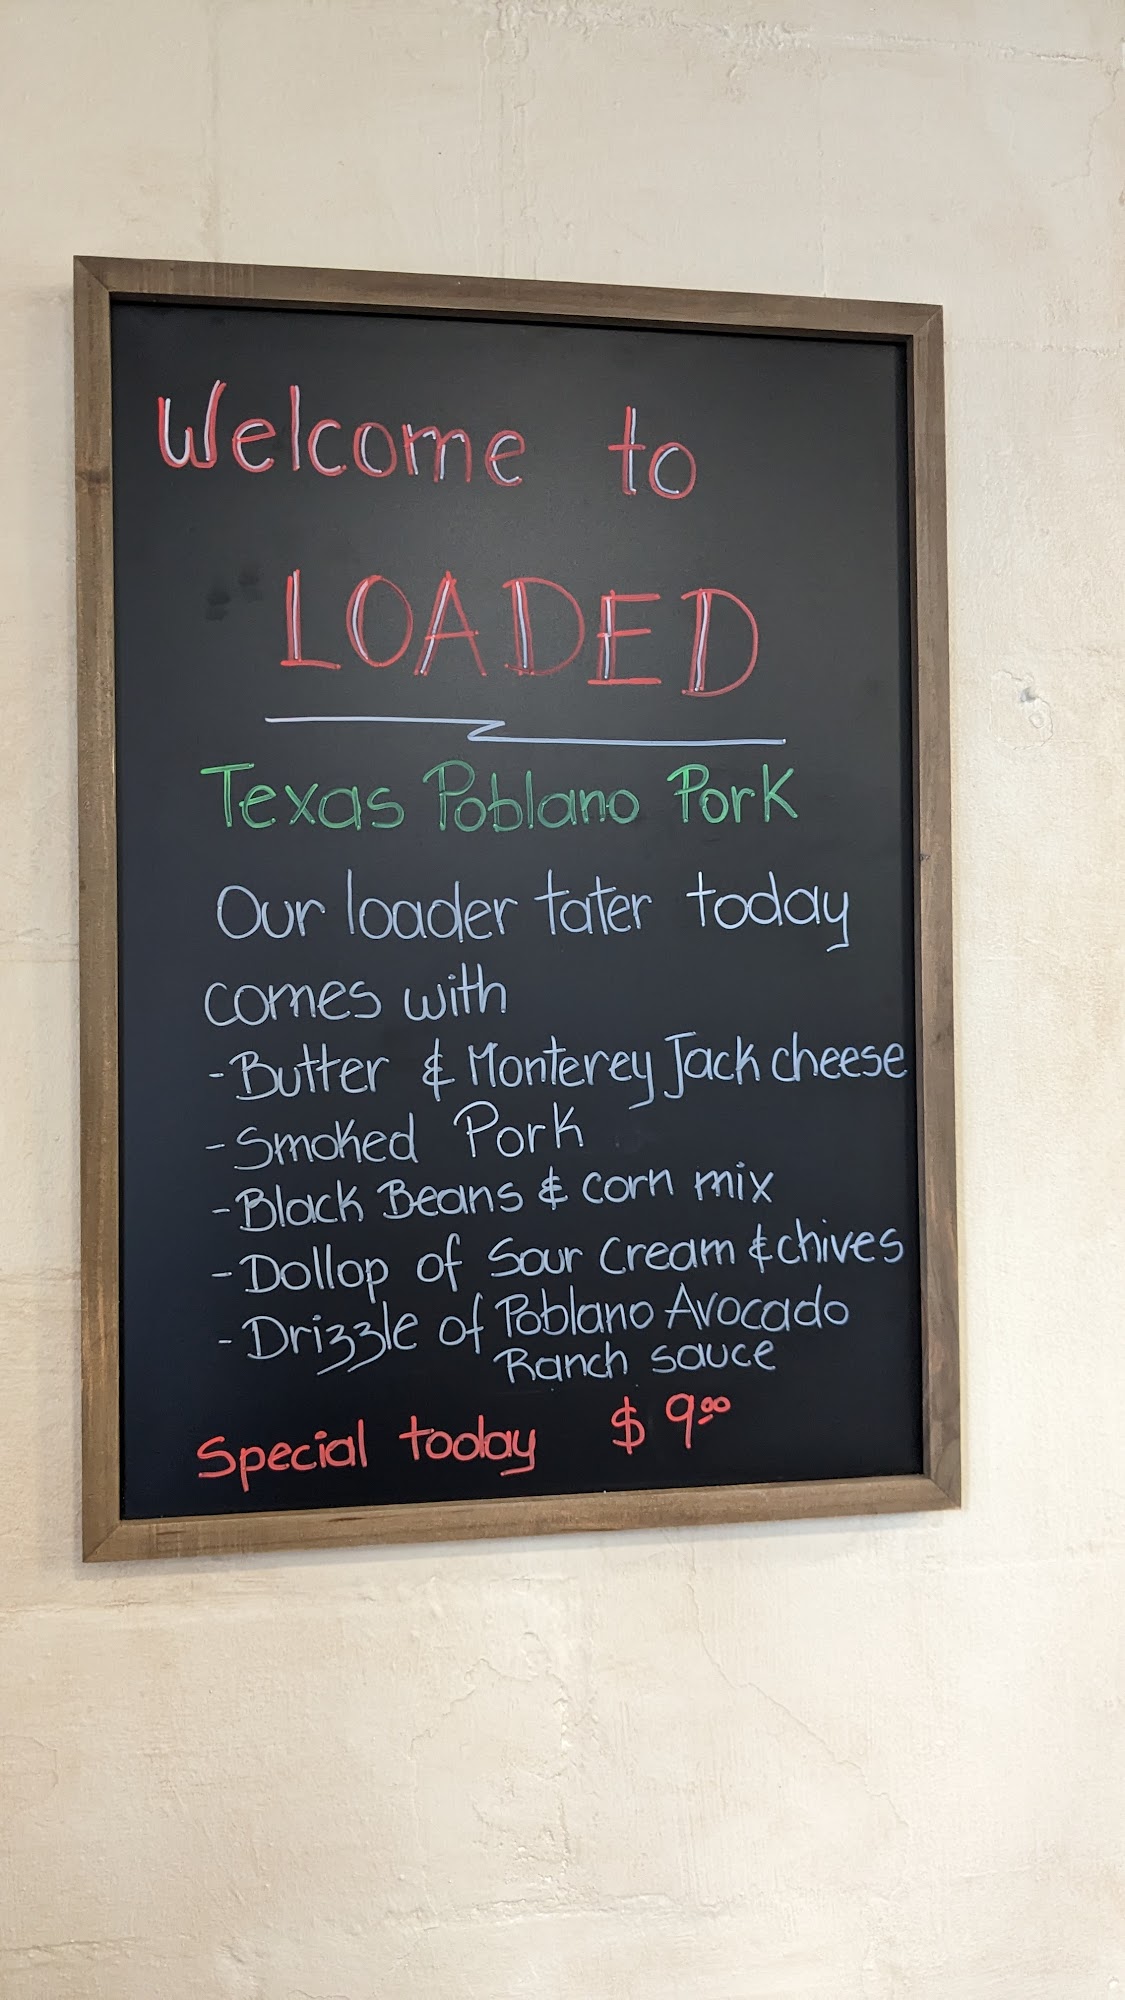 Welcome to
LOADED
Texas Poblano Pork
Our loader tater today
comes with
- Butter & Monterey Jack cheese
- Smoked Pork
- Black Beans & corn mix
- Dollop of Sour Cream & chives
- Drizzle of Poblano Avocado
Ranch sauce
Special today $ 9.00